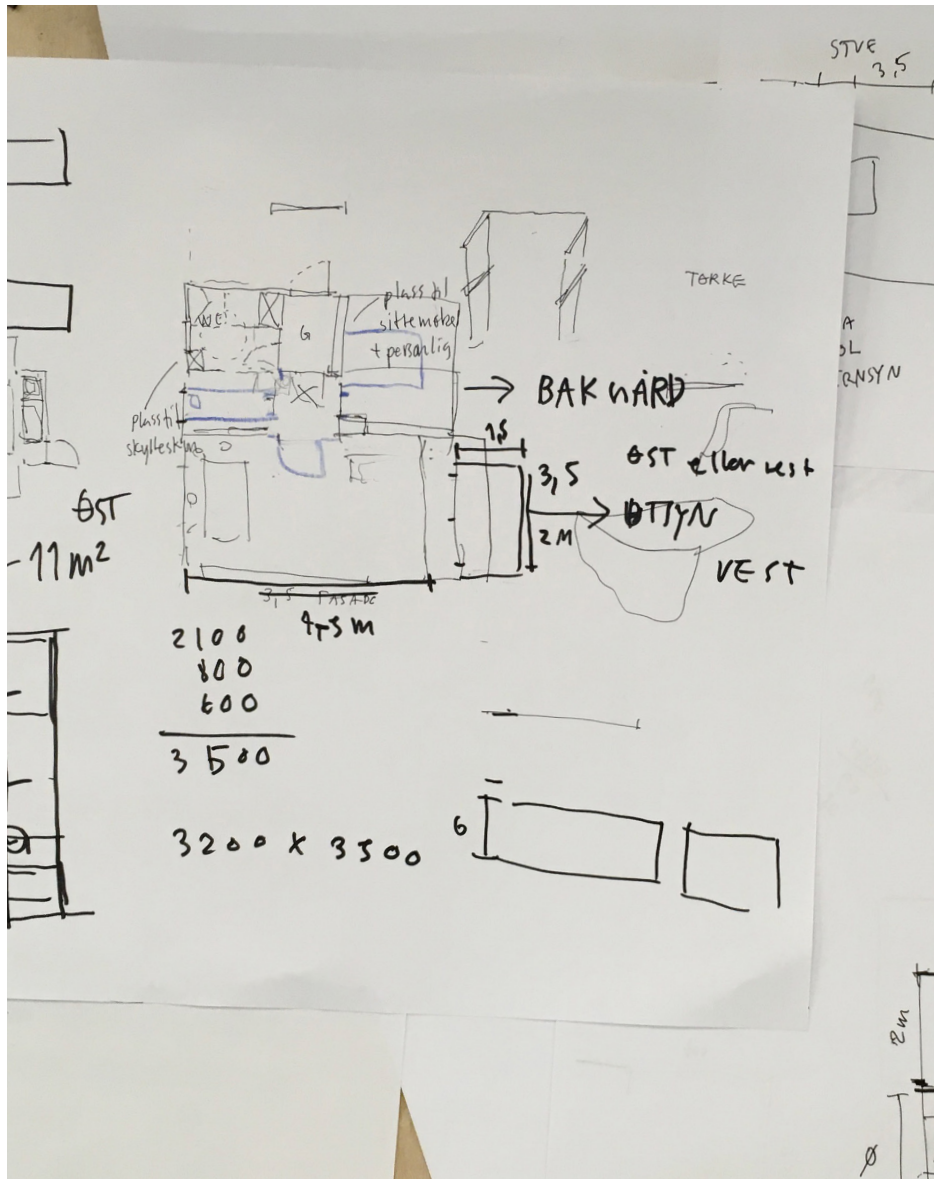 STUE
3,5
TØRKE
plass til
sittemøbel
+ personlig
WC
G
→ BAKGÅRD
plass til
skylleskum
1,5
ØST eller vest
3,5
2M
UTSYN
VEST
ØST
11 m²
3,5 FASADE
4,5 m
2100
800
600
3500
3200 x 3500
6
2m
Ø